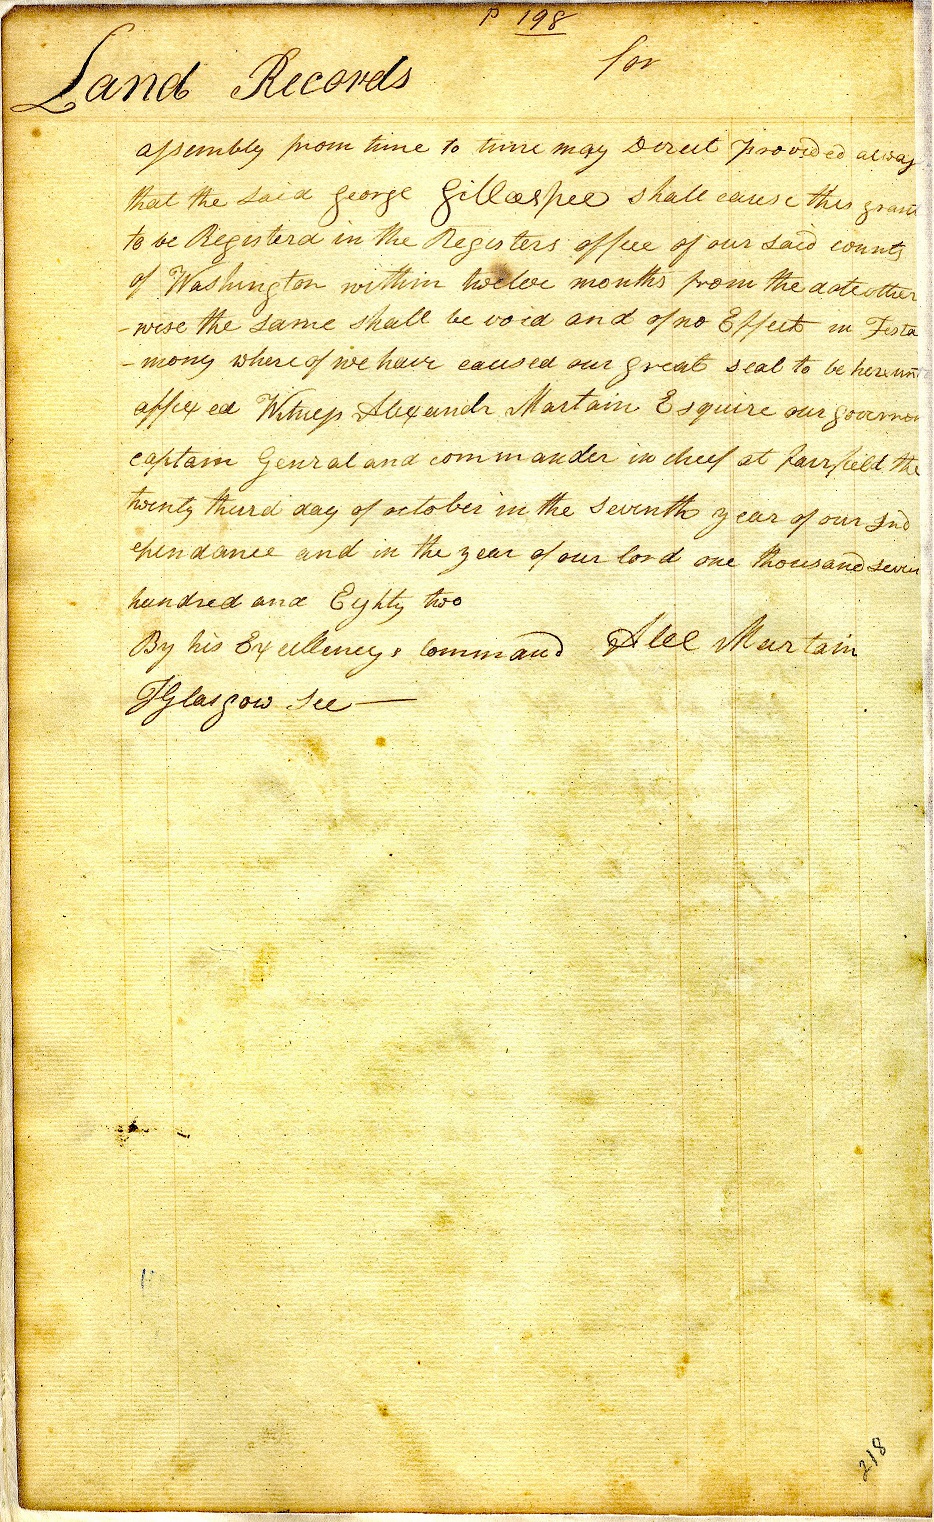 P 198
Land Records for
assembly from time to time may Direct Provided alway
that the said George Gillaspee shall cause this grant
to be Registerd in the Registers office of our said county
of Washington within twelve months from the date other
-wise the same shall be void and of no Effect in Testa
-mony where of we have caused our great seal to be hereunt
affixed Witness Alexandr Martain Esquire our governor
captain Genral and commander in cheef at fairfield the
twenty third day of october in the seventh year of our Ind
ependance and in the year of our lord one thousand seven
hundred and Eighty two
By his Excellencys command Alex Martain
J Glasgow Sec —
218